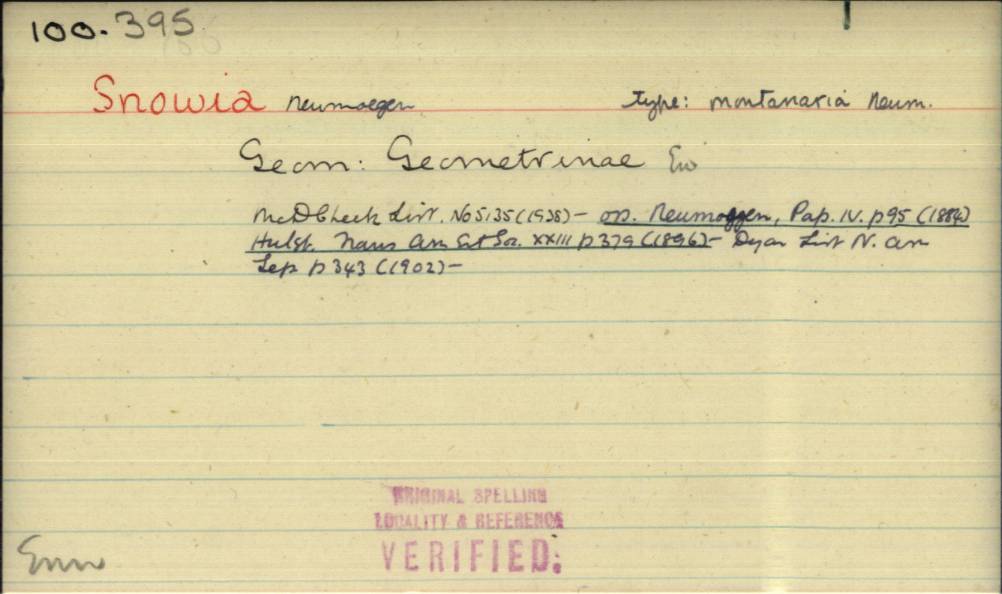 100.395
Snowia Neumoegen type: montanaria Neum.
Geom: Geometrinae En
McD Check List. No 5135 (1938) - op. Neumoegen, Pap. IV. p95 (1884)
Hulst. Trans Am Ent Soc. XXIII p379 (1896) - Dyar List N. Am
Lep p343 (1902) -
ORIGINAL SPELLING
LOCALITY & REFERENCE
VERIFIED.
Enn